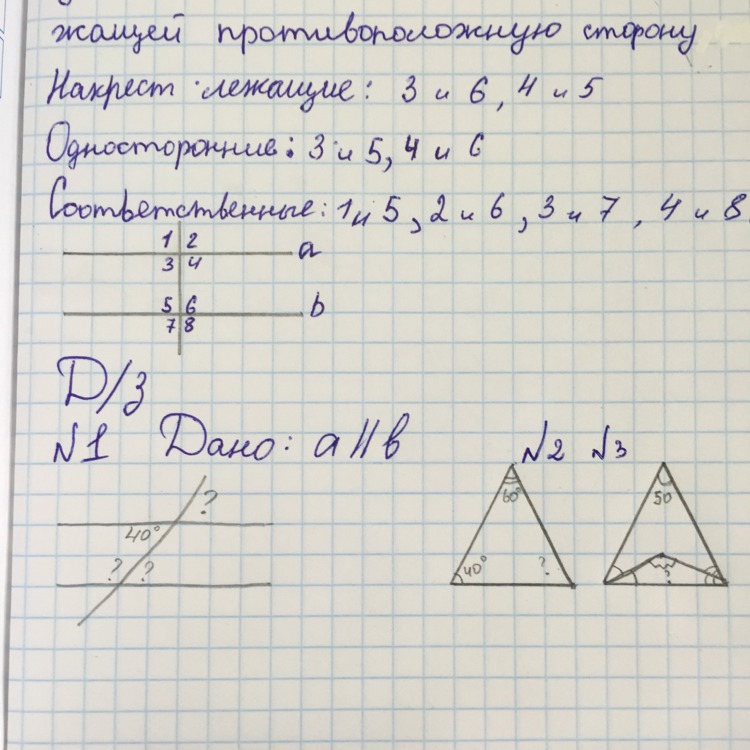 жащей противоположную сторону
Накрест лежащие: 3 и 6, 4 и 5
Односторонние: 3 и 5, 4 и 6
Соответственные: 1 и 5, 2 и 6, 3 и 7, 4 и 8.
1 2
a
3 4
5 6
b
7 8
Д/з
№1 Дано: a || b
№2 №3
?
40°
? ?
60°
40°
?
50
?